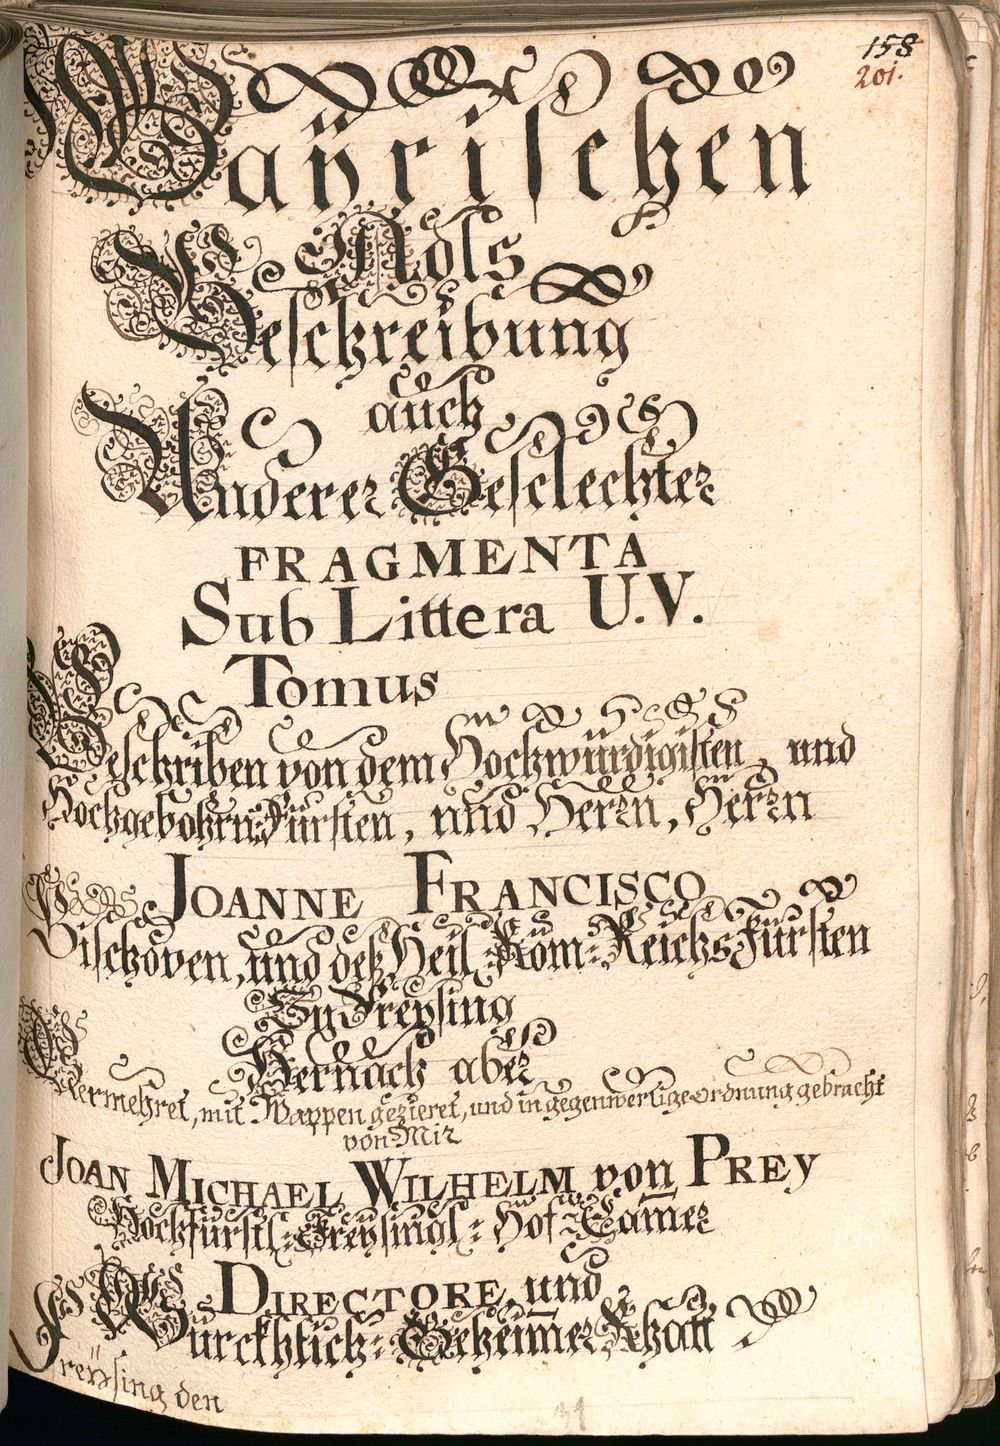 158
201.
Baÿrischen
Adls
Beschreibung
auch
Anderer Geschlechter
FRAGMENTA
Sub Littera U.V.
Tomus
Beschriben von dem Hochwürdigisten, und
Hochgebohrn: Fürsten, und Herrn, Herrn
JOANNE FRANCISCO
Bischoven, und deß Heil: Röm: Reichs Fürsten
Zu Freysing
Hernach aber
Vermehret, mit Wappen gezieret, und in gegenwertige ordnung gebracht
von Mir
JOAN MICHAEL WILHELM von PREY
Hochfürstl: Freysingl: Hof Camer
DIRECTORE und
Würckhlich: Geheimer Rhatt
Freÿsing den